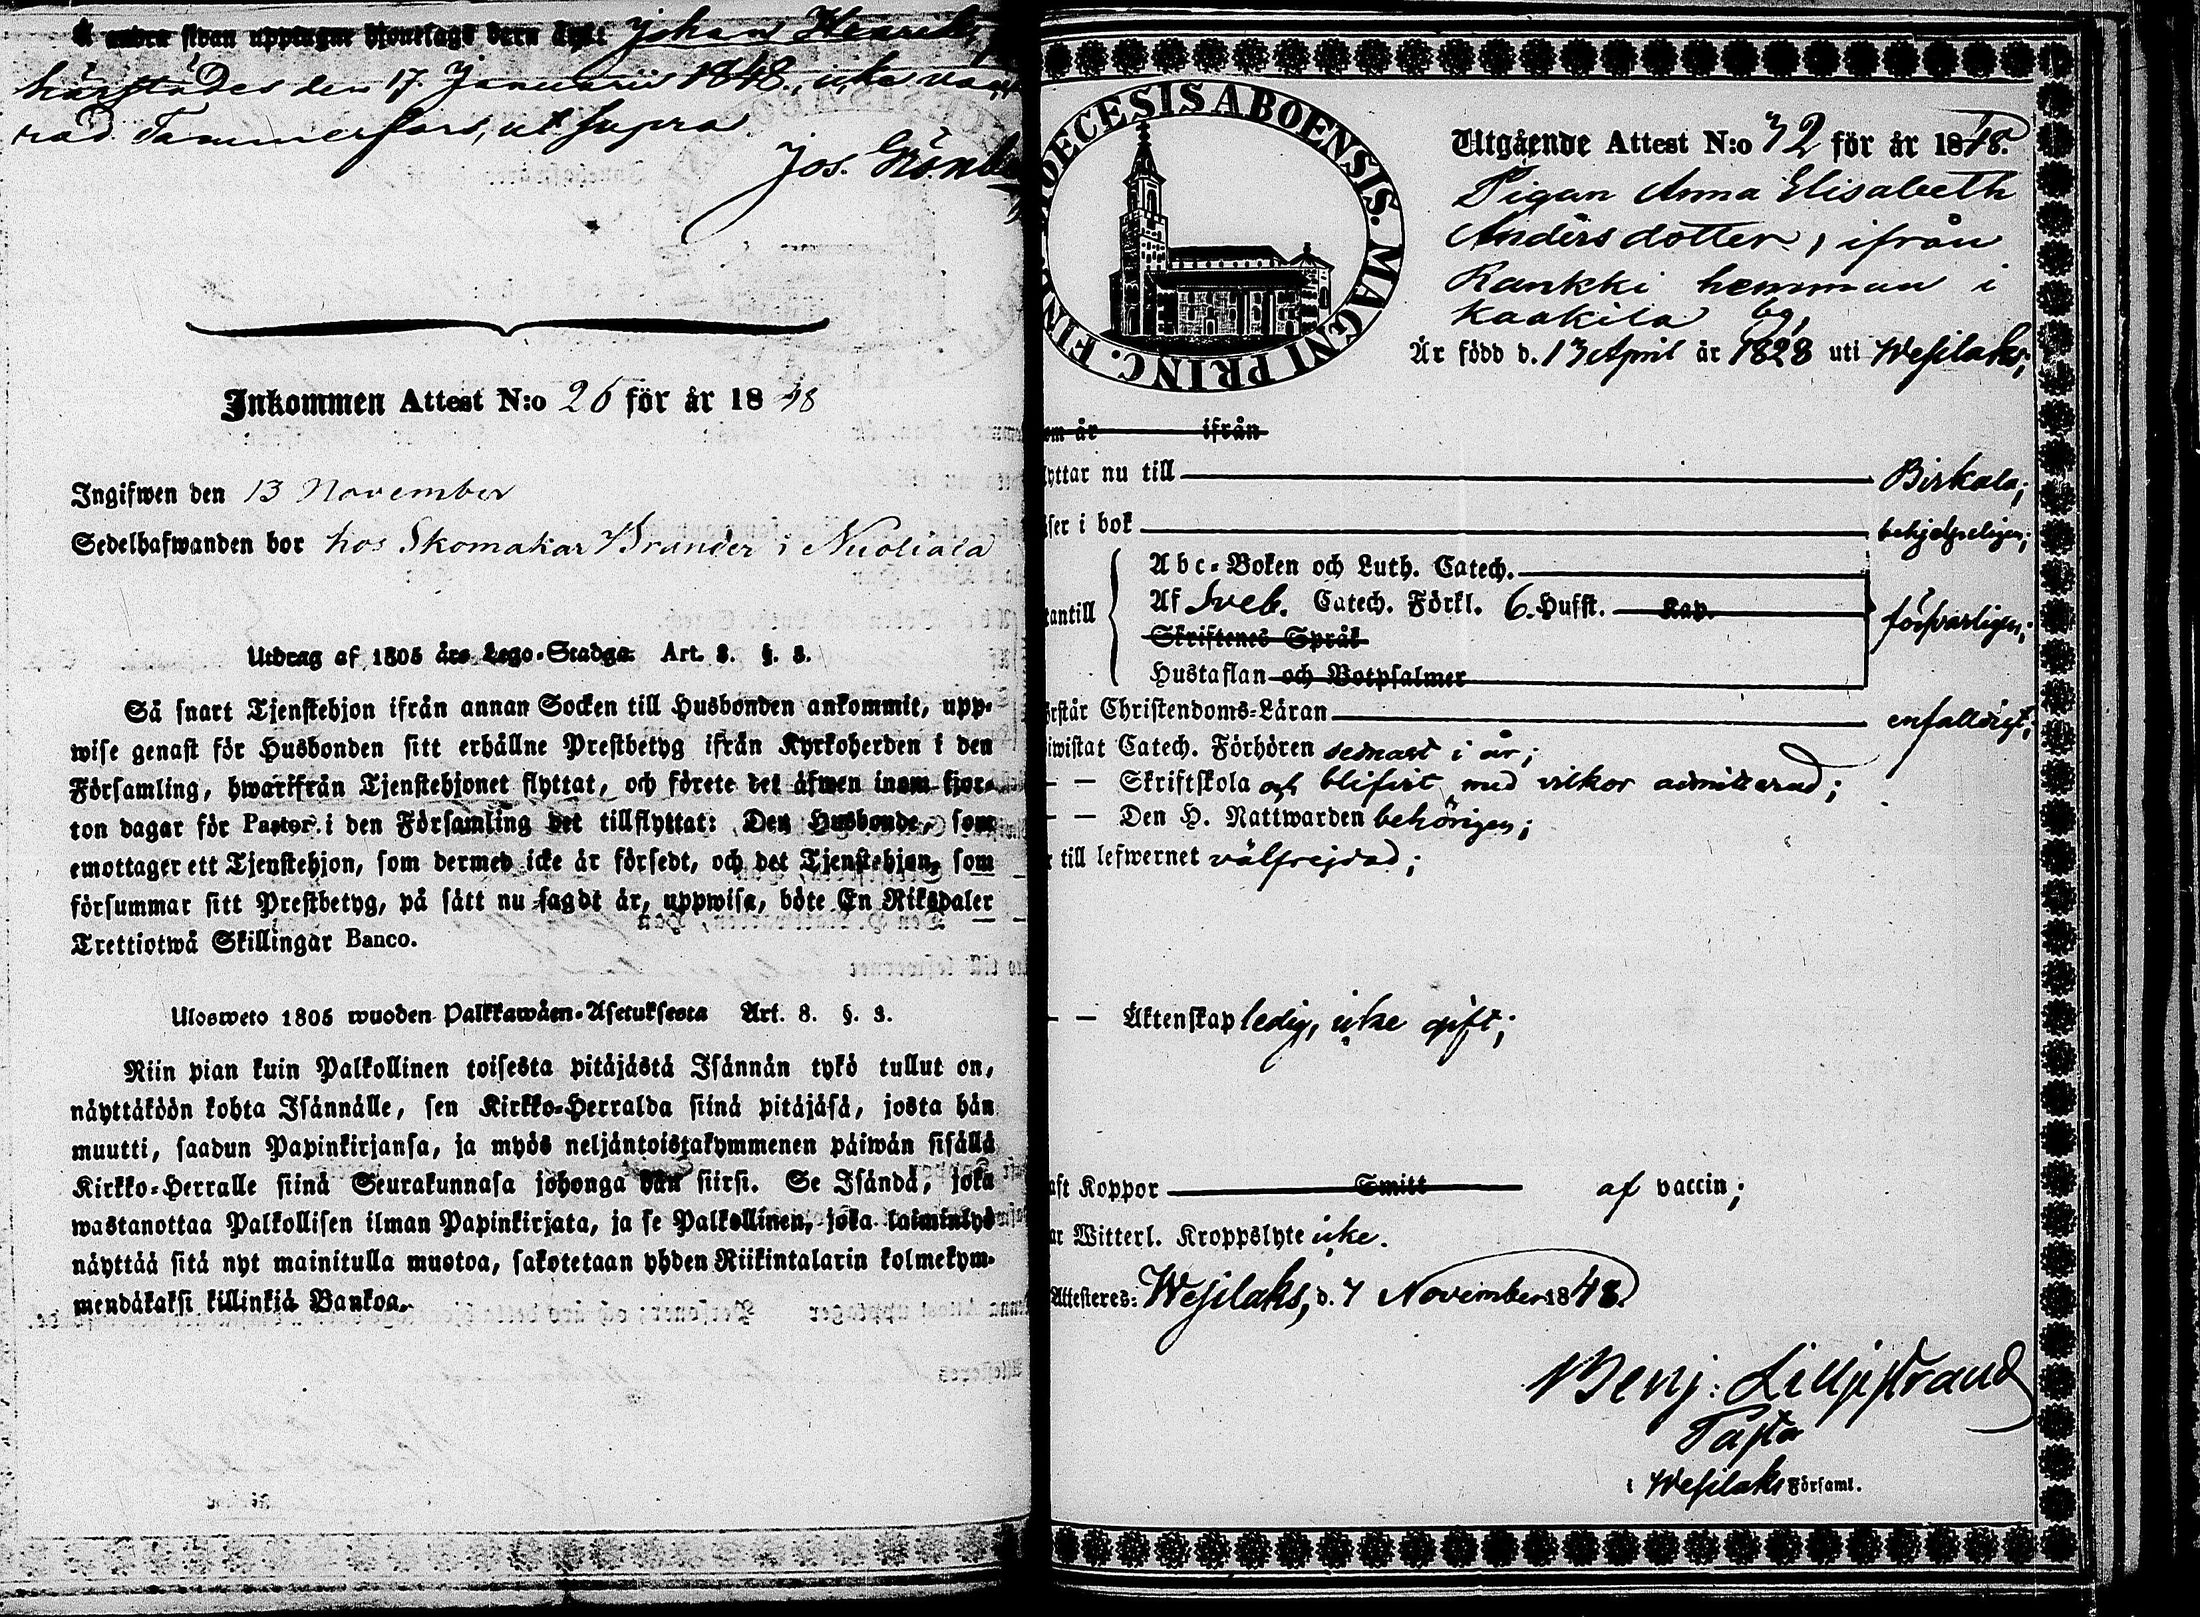 å andra sidan upptagne hjonelags barn Johan Henrik
härstädes den 17 Januarii 1848, icke va
rad. Tammerfors, ut supra
Jos. Grönb
Inkommen Attest N:o 26 för år 1848
Ingifwen den 13 November
Sedelhafwanden bor hos Skomakar Brander i Nuoliala
Utdrag af 1805 års Lego-Stadga Art. 8. §. 3.
Så snart Tjenstehjon ifrån annan Socken till Husbonden ankommit, upp-
wise genast för Husbonden sitt erhållne Prestbetyg ifrån Kyrkoherden i den
Församling, hwarifrån Tjenstehjonet flyttat, och förete det äfwen inom fjor-
ton dagar för Pastor i den Församling det tillflyttat: Den Husbonde, som
emottager ett Tjenstehjon, som dermed icke är försedt, och det Tjenstehjon, som
försummar sitt Prestbetyg, på sätt nu sagdt är, uppwisa, böte En Riksdaler
Trettiotwå Skillingar Banco.
Ulosweto 1805 wuoden Palkkawäen-Asetuksesta Art. 8. §. 3.
Niin pian kuin Palkollinen toisesta pitäjästä Isännän tykö tullut on,
näyttäköön kohta Isännälle, sen Kirkko-Herralda siinä pitäjäsä, josta hän
muutti, saadun Papinkirjansa, ja myös neljäntoistakymmenen päiwän sisällä
Kirkko-Herralle siinä Seurakunnasa johonga hän siirsi. Se Isändä, joka
wastanottaa Palkollisen ilman Papinkirjata, ja se Palkollinen, joka laiminlyö
näyttää sitä nyt mainitulla muotoa, sakotetaan yhden Riikintalarin kolmekym-
mendäkaksi killinkiä Bankoa.
DIOECESIS ABOENSIS. MAGNI PRINC. FINL.
Utgående Attest N:o 32 för år 1848.
Pigan Anna Elisabeth
Andersdotter, ifrån
Rankki hemman i
Kaakila by,
Är född d. 13 April år 1828 uti Wesilaks;
om år ifrån
lyttar nu till Birkala;
äser i bok behjelpeligen;
tantill
Abc-Boken och Luth. Catech.
Af Sveb. Catech. Förkl. 6. Hufst. Kap.
Skriftenes Språk
Hustaflan och Botpsalmer
försvarligen;
örstår Christendoms-Läran enfaldigt;
iwistat Catech. Förhören senast i år;
— — Skriftskola och blifvit med vilkor admitterad;
— — Den H. Nattwarden behörigen;
r till lefwernet välfrejdad;
— — Äktenskap ledig, icke gift;
aft Koppor Smitt af vaccin;
ar Witterl. Kroppslyte icke.
Attesteres: Wesilaks, d. 7 November 1848.
Benj: Lilljestrand
Pastor
i Wesilaks Församl.